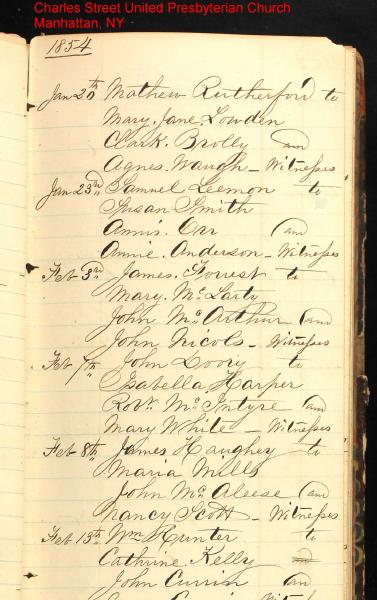 Charles Street United Presbyterian Church
Manhattan, NY
1854
Jan 20th Mathew Rutherford to
Mary Jane Lowden
Clark Brolly and
Agnes Waugh - Witnesses
Jan 23rd Samuel Leemon to
Susan Smith
Annis Orr and
Annie Anderson - Witnesses
Feb 3rd James Forrest to
Mary McLarty
John McArthur and
John Nicols - Witnesses
Feb 7th John to
Isabella Harper
Robt McIntyre and
Mary White - Witnesses
Feb 8th James Haughey to
Maria Mills
John McAleese and
Nancy Scott - Witnesses
Feb 13th Wm Hunter to
Cathrine Kelly
John Currin and